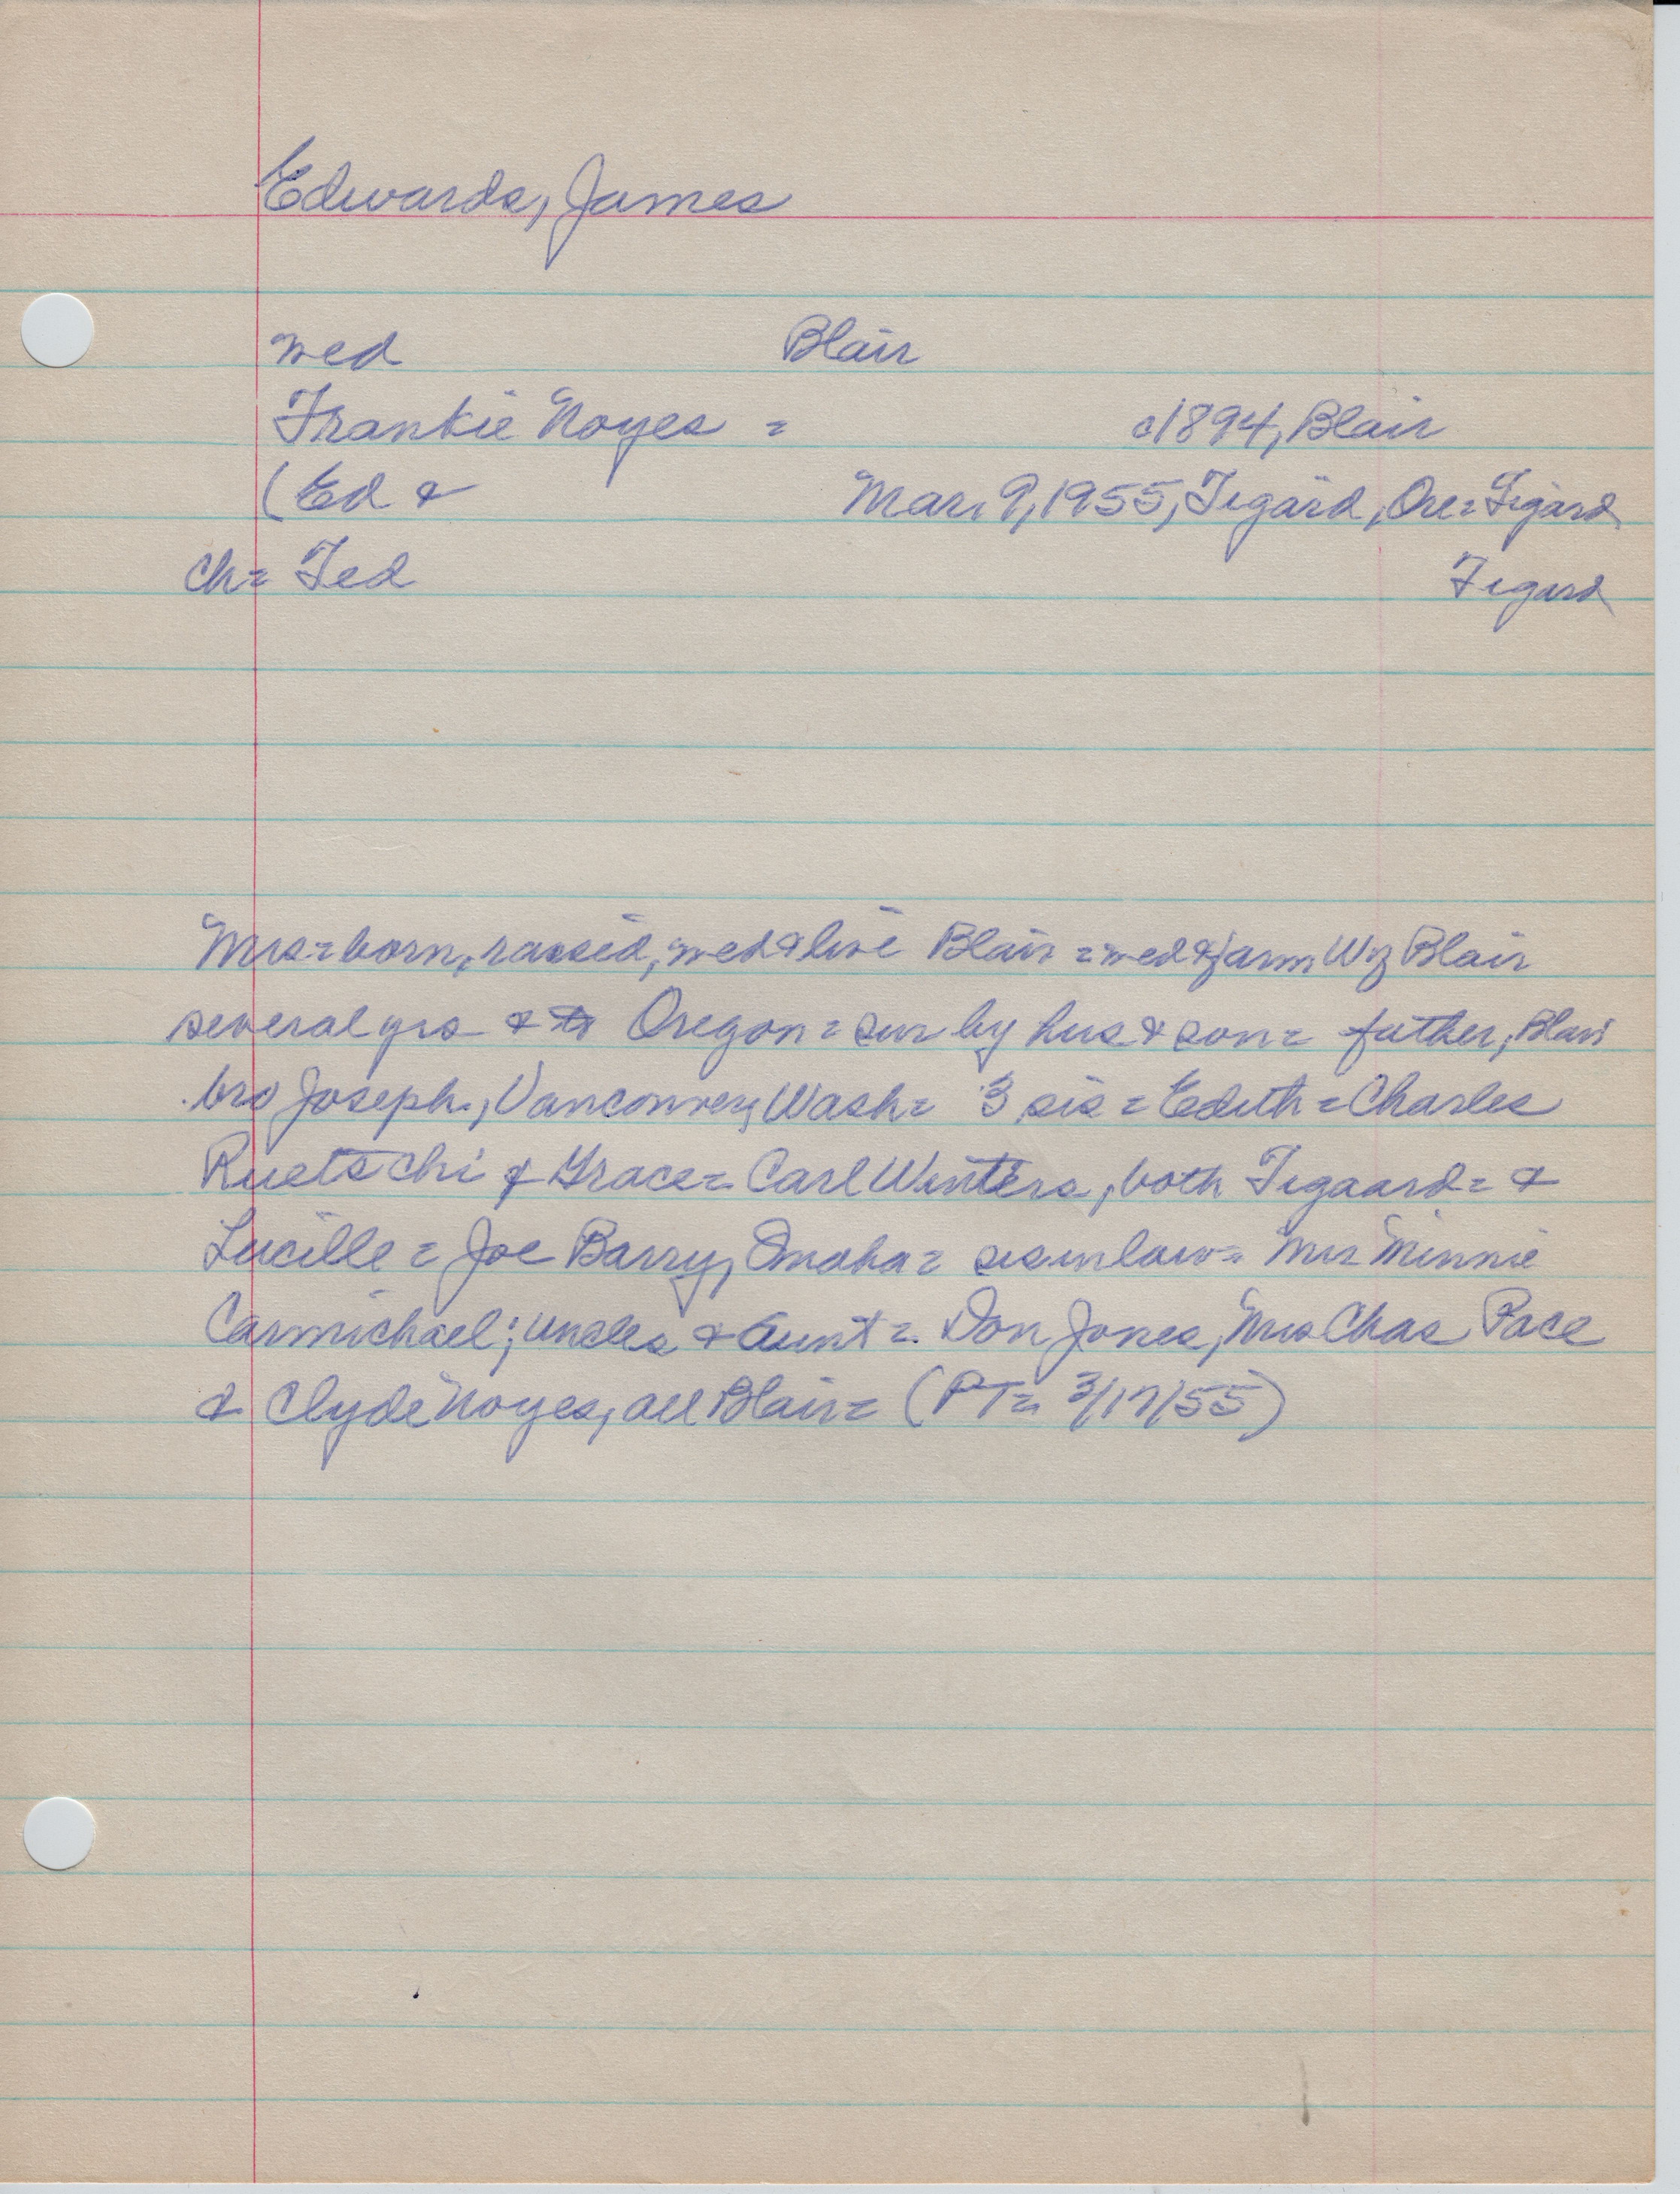 Edwards, James
wed Blair
Frankie Noyes = c1894, Blair
(Ed & Mar. 9, 1955, Tegard, Ore = Tigard
ch = Ted Tegard
Mrs = born, raised, wed & live Blair = wed & farm W of Blair
several yrs & to Oregon = sur by hus & son = father, Blair
bro Joseph, Vancouver, Wash = 3 sis = Edith = Charles
Ruetschi & Grace = Carl Winters, both Tegaard = &
Lucille = Joe Barry, Omaha = sisinlaw = Mrs Minnie
Carmichael; uncles & Aunt = Don Jones, Mrs Chas Pace
& Clyde Noyes, all Blair = (PT = 3/17/55)